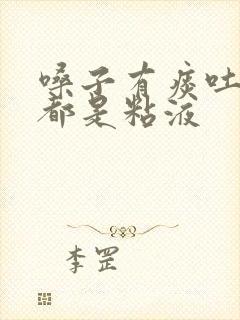 嗓子有痰吐
都是粘液
李罡